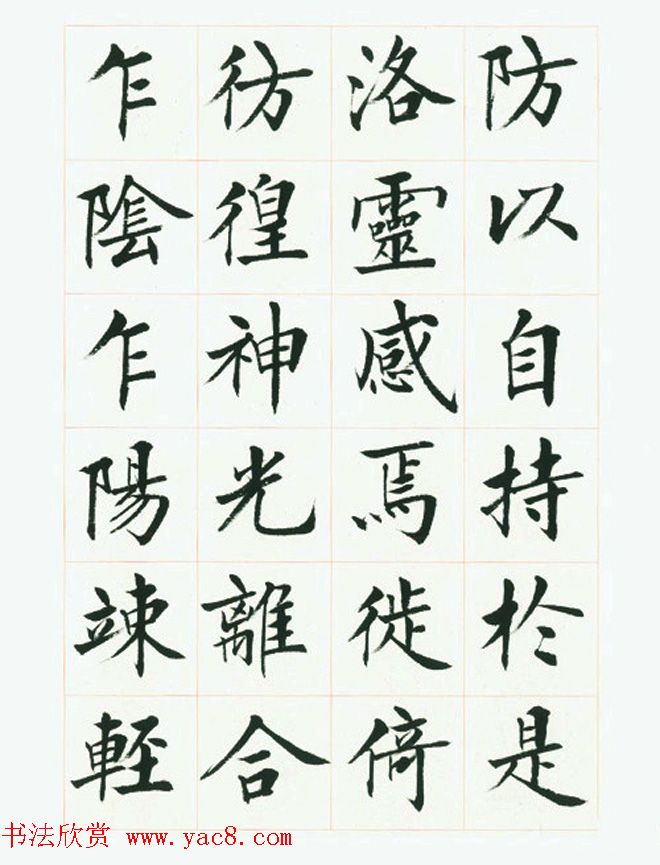 防以自持於是
洛靈感焉徙倚
彷徨神光離合
乍陰乍陽竦輕
书法欣赏 www.yac8.com